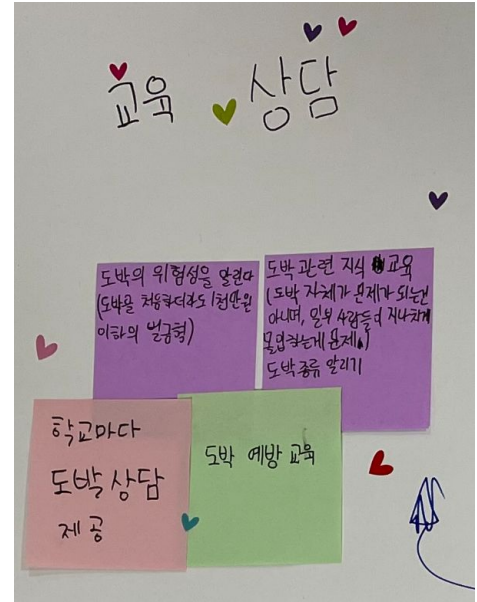 교육 상담
도박의 위험성을 알린다
(도박을 처음하더라도 1천만원
이하의 벌금형)
도박 관련 지식 교육
(도박 자체가 문제가 되는건
아니며, 일부 사람들이 지나치게
몰입하는게 문제)
도박종류 알리기
학교마다
도박 상담
제공
도박 예방 교육